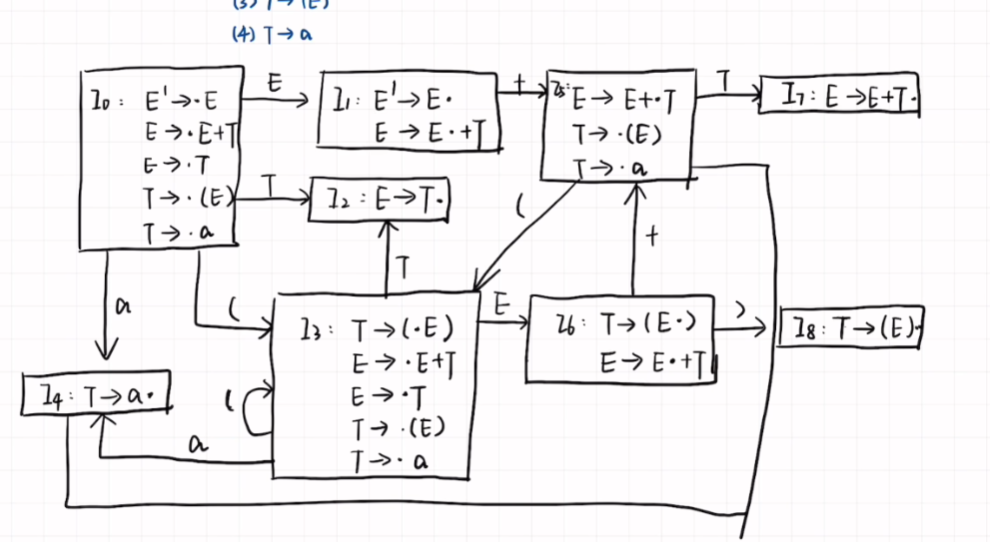 (3) T→(E)
(4) T→a
I0: E'→·E
E→·E+T
E→·T
T→·(E)
T→·a
E
I1: E'→E·
E→E·+T
+
I5: E→E+·T
T→·(E)
T→·a
T
I7: E→E+T·
T
I2: E→T·
(
+
T
a
(
I3: T→(·E)
E→·E+T
E→·T
T→·(E)
T→·a
E
I6: T→(E·)
E→E·+T
)
I8: T→(E)·
I4: T→a·
(
a